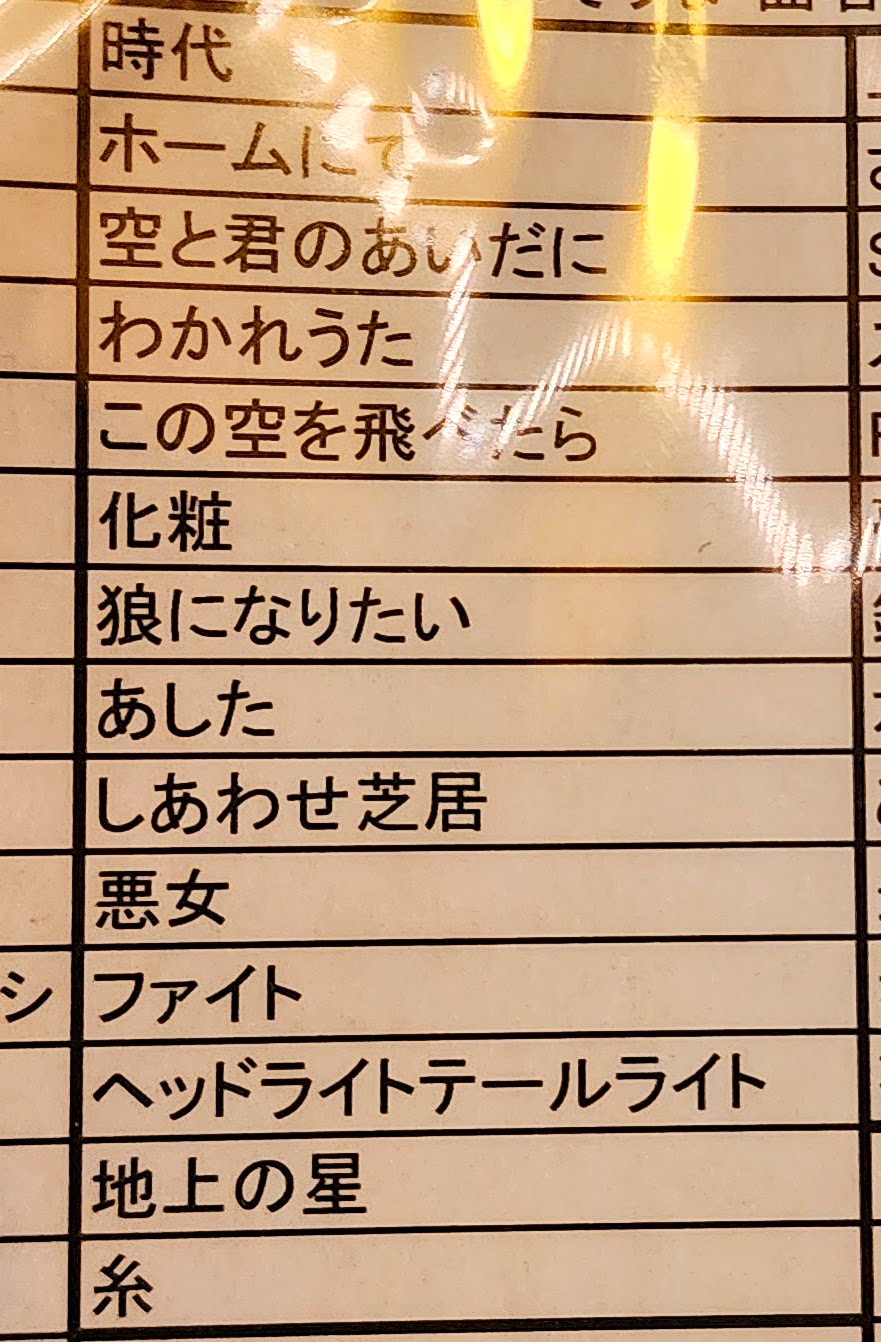 時代
ホームにて
空と君のあいだに
わかれうた
この空を飛べたら
化粧
狼になりたい
あした
しあわせ芝居
悪女
シ ファイト
ヘッドライトテールライト
地上の星
糸